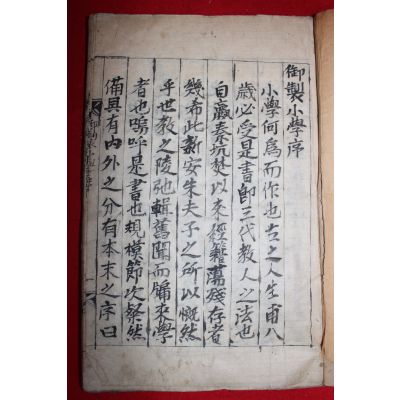 御製小學序
小學何爲而作也古之人生甫八
歲必受是書即三代教人之法也
自嬴秦坑焚以來經籍蕩殘存者
幾希此新安朱夫子之所以慨然
乎世教之陵弛輯舊聞而牖來學
者也嗚呼是書也規模節次粲然
備具有內外之分有本末之序曰